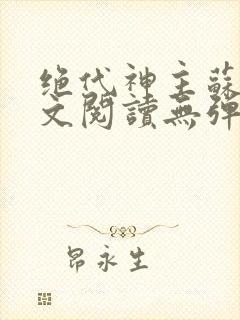 绝代神主蘇
文閱讀無彈
昂永生